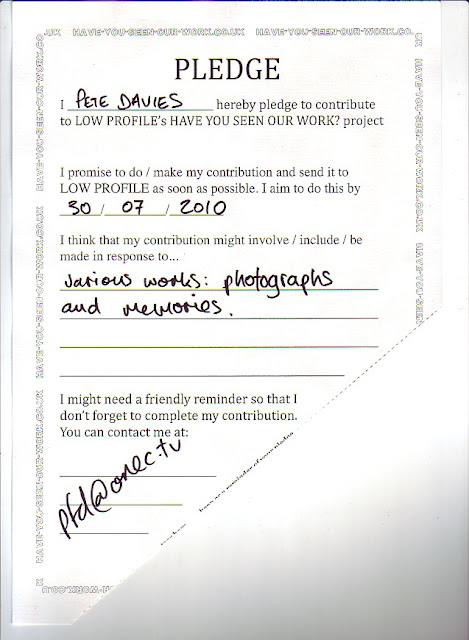 .UK HAVE-YOU-SEEN-OUR-WORK.CO.UK HAVE-YOU-SEEN-OUR-WORK.CO.
PLEDGE
I PETE DAVIES hereby pledge to contribute
to LOW PROFILE's HAVE YOU SEEN OUR WORK? project
I promise to do / make my contribution and send it to
LOW PROFILE as soon as possible. I aim to do this by
30 / 07 / 2010
I think that my contribution might involve / include / be
made in response to...
various works: photographs
and memories.
I might need a friendly reminder so that I
don't forget to complete my contribution.
You can contact me at:
pfd@onec.tv
HAVE-YOU-SEEN-OUR-WORK.CO.UK
HAVE-YOU-SEEN-OUR-WORK.CO.UK